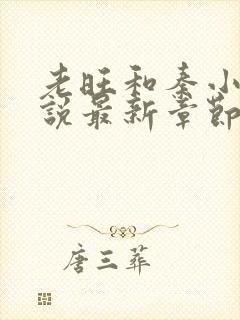 老旺和秦小
說最新章節
唐三葬